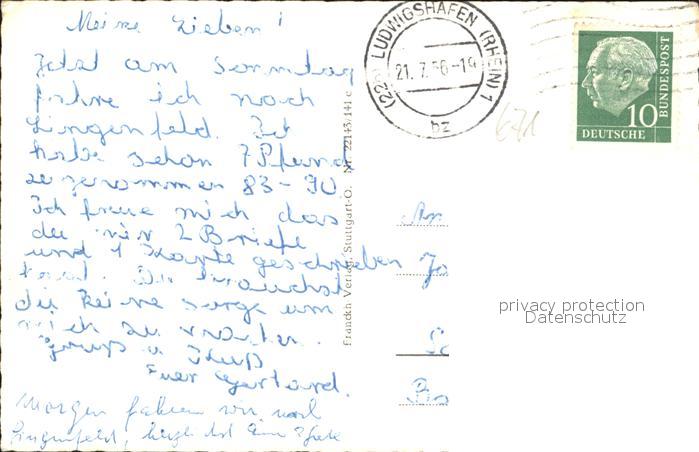 Meine Lieben!
Jetzt am Sonntag
fahre ich nach
Lingenfeld. Ich
habe schon 7 Pfund
zugenommen 83-90
Ich freue mich das
du mir 2 Briefe
und 1 Karte geschrieben
hast. Du brauchst
dir keine sorge um
mich zu machen.
Gruß u Kuß
Euer Gerhard.
Morgen fahren wir nach
Lingenfeld,
Franckh Verlag, Stuttgart-O. Nr. 22143/141 c
(22b) LUDWIGSHAFEN (RHEIN) 1
21. 7. 56-19
bz
671
10
DEUTSCHE
BUNDESPOST
An
Bo
privacy protection
Datenschutz